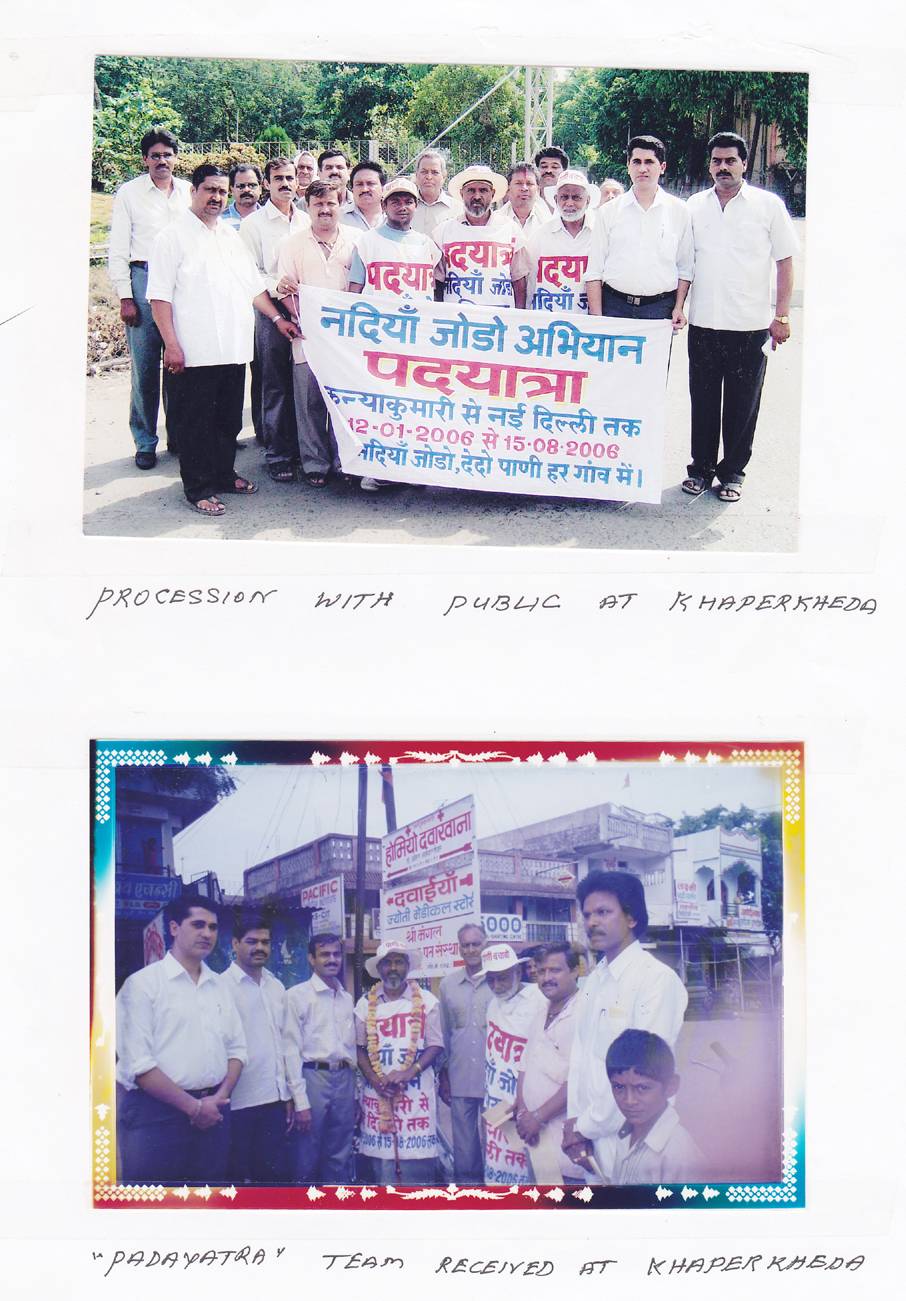 पदयात्रा
नदियाँ जोडो
नदियाँ जोडो अभियान
पदयात्रा
कन्याकुमारी से नई दिल्ली तक
12-01-2006 से 15-08-2006
नदियाँ जोडो, देदो पाणी हर गांव में।
PROCESSION WITH PUBLIC AT KHAPERKHEDA
होमियो दवाखाना
दवाईयाँ
ज्योती मेडीकल स्टोर्स
श्री मंगल
PACIFIC
5000
दयात्रा
याँ जो
याकुमारी से
दिल्ली तक
2006 से 15-08-2006
दयात्र
ली तक
8-2006
"PADAYATRA" TEAM RECEIVED AT KHAPERKHEDA